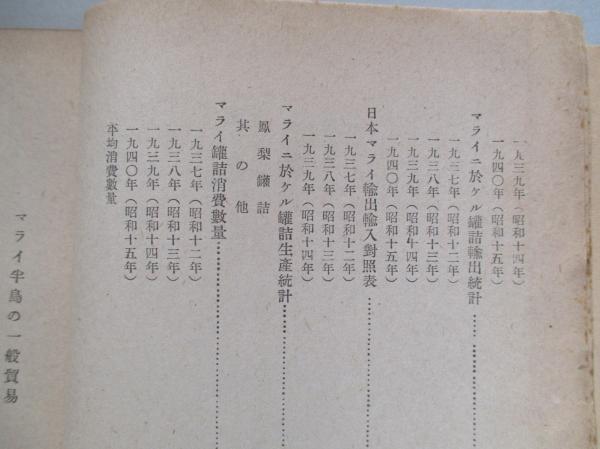 一九三九年(昭和十四年)
一九四〇年(昭和十五年)
マライニ於ケル罐詰輸出統計……
一九三七年(昭和十二年)
一九三八年(昭和十三年)
一九三九年(昭和十四年)
一九四〇年(昭和十五年)
日本マライ輸出輸入對照表……
一九三七年(昭和十二年)
一九三八年(昭和十三年)
一九三九年(昭和十四年)
マライニ於ケル罐詰生產統計……
鳳梨罐詰
其の他
マライ罐詰消費數量……
一九三七年(昭和十二年)
一九三八年(昭和十三年)
一九三九年(昭和十四年)
一九四〇年(昭和十五年)
平均消費數量
マライ半島の一般貿易